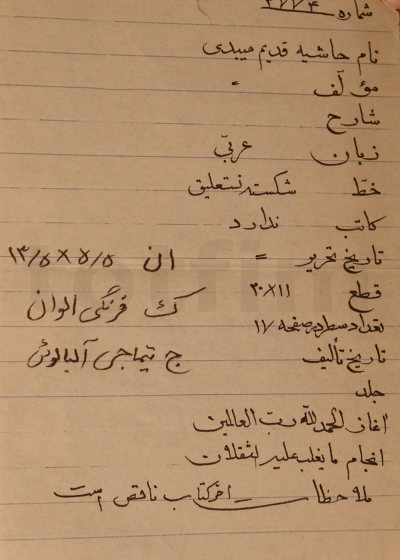 شماره ۳۷۷۴
نام حاشیه قدیم میبدی
مؤلف "
شارح
زبان عربّی
خطّ شکسته نستعلیق
کاتب ندارد
تاریخ تحریر = ان ۵/۵ × ۱۳/۵
قطع ۱۱×۲۰ ک فرنگی الوان
تعداد سطر در صفحه ۱۷
تاریخ تألیف ج تیماجی آلبالوئی
جلد
آغاز الحمدلله ربّ العالمین
انجام ما یغلب علیه الثقلان
ملاحظات اخر کتاب ناقص است